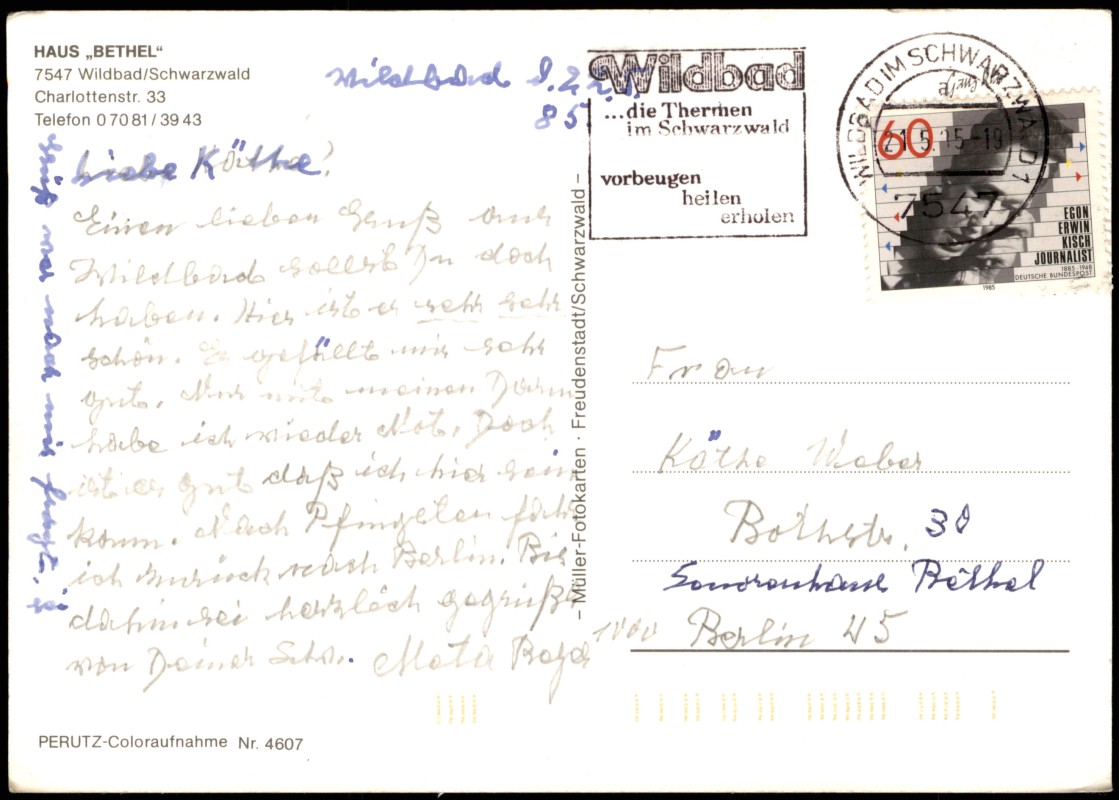 HAUS „BETHEL“
7547 Wildbad/Schwarzwald
Charlottenstr. 33
Telefon 0 70 81 / 39 43
Wildbad
85
liebe Käthe!
Einen lieben Gruß aus
Wildbad sollst Du doch
haben. Hier ist es sehr sehr
schön. Es gefällt mir sehr
gut. Nur mit meinen Darm
habe ich wieder Not. Doch
ist es gut daß ich hier sein
kann. Nach Pfingsten fahr
ich zurück nach Berlin. Bis
dahin sei herzlich gegrüßt
von Deiner Schw.
Grüß wer nach mir fragt.
PERUTZ-Coloraufnahme Nr. 4607
– Müller-Fotokarten · Freudenstadt/Schwarzwald –
Wildbad
...die Thermen
im Schwarzwald
vorbeugen
heilen
erholen
WILDBAD IM SCHWARZWALD 1
7547
60
EGON
ERWIN
KISCH
JOURNALIST
1885-1948
DEUTSCHE BUNDESPOST
1985
Frau
Käthe Weber
Bothstr. 30
Berlin 45
1000